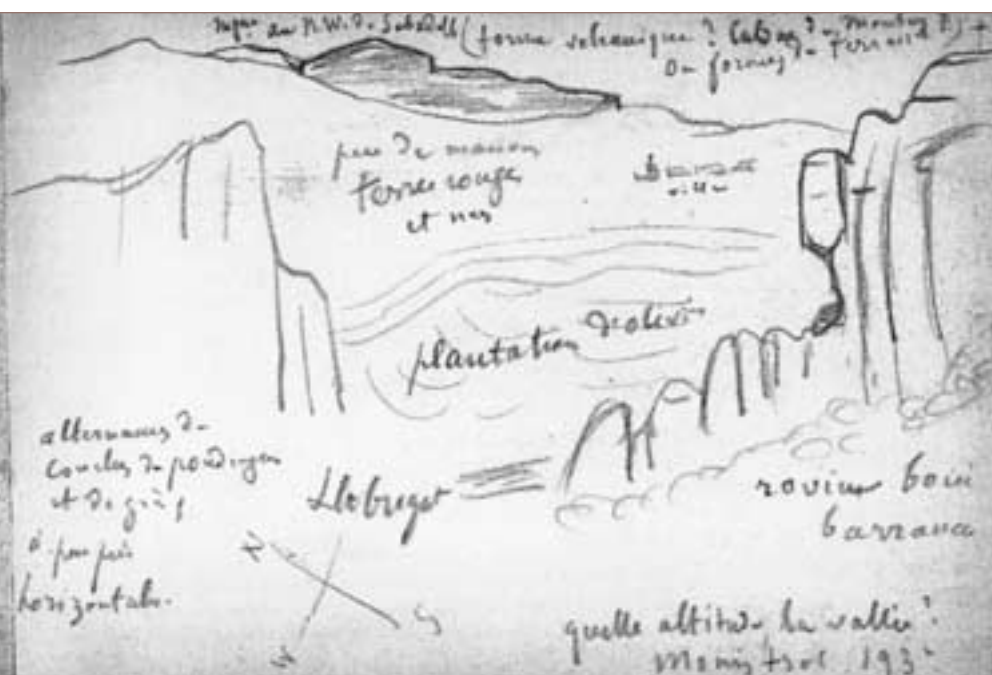 mgne au N.W. de Sabadell (forme volcanique ?
ou formes de terrain
peu de maisons
terres rouges
et
ville
plantation d'oliviers
alternances de
couches de poudingues
et de grès
à peu près
horizontales.
Llobregat
ravine
barranca
N
S
quelle altitude la vallée ?
Monistrol 193